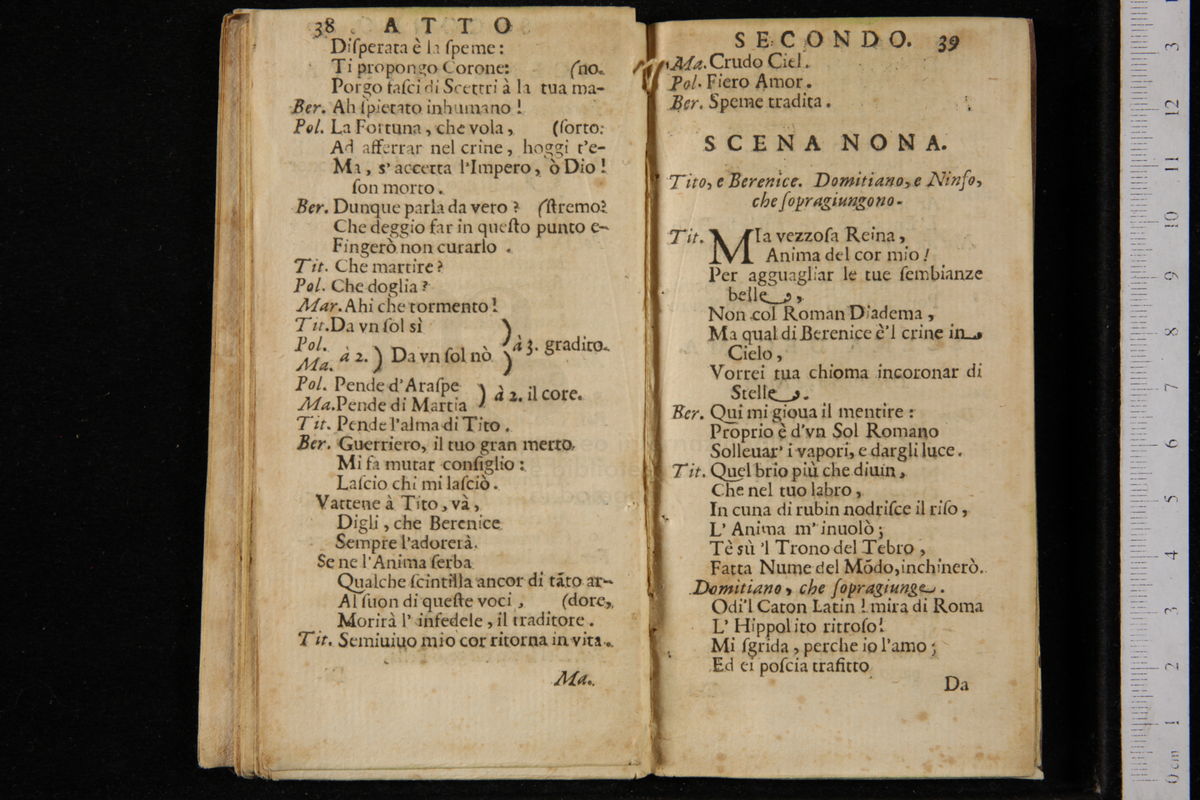 38 ATTO
Diſperata è la ſpeme:
Ti propongo Corone: (no.
Porgo faſci di Scettri à la tua ma-
Ber. Ah ſpietato inhumano!
Pol. La Fortuna, che vola, (ſorto:
Ad afferrar nel crine, hoggi t'e-
Ma, s'accetta l'Impero, ò Dio!
ſon morto.
Ber. Dunque parla da vero? (ſtremo?
Che deggio far in queſto punto e-
Fingerò non curarlo.
Tit. Che martire?
Pol. Che doglia?
Mar. Ahi che tormento!
Tit. Da vn ſol sì
Pol. Ma. à 2. ) Da vn ſol nò ) à 3. gradito.
Pol. Pende d'Araſpe
Ma. Pende di Martia ) à 2. il core.
Tit. Pende l'alma di Tito.
Ber. Guerriero, il tuo gran merto
Mi fa mutar conſiglio:
Laſcio chi mi laſciò.
Vattene à Tito, và,
Digli, che Berenice
Sempre l'adorerà.
Se ne l'Anima ſerba
Qualche ſcintilla ancor di tãto ar-
Al ſuon di queſte voci, (dore,
Morirà l'infedele, il traditore.
Tit. Semiuiuo mio cor ritorna in vita.
Ma.
SECONDO. 39
Ma. Crudo Ciel.
Pol. Fiero Amor.
Ber. Speme tradita.
SCENA NONA.
Tito, e Berenice. Domitiano, e Ninfo,
che ſopragiungono.
Tit. MIa vezzoſa Reina,
Anima del cor mio!
Per agguagliar le tue ſembianze
belle,
Non col Roman Diadema,
Ma qual di Berenice è'l crine in
Cielo,
Vorrei tua chioma incoronar di
Stelle.
Ber. Qui mi gioua il mentire:
Proprio è d'vn Sol Romano
Solleuar' i vapori, e dargli luce.
Tit. Quel brio più che diuin,
Che nel tuo labro,
In cuna di rubin nodriſce il riſo,
L'Anima m'inuolò;
Tè sù 'l Trono del Tebro,
Fatta Nume del Mõdo, inchinerò.
Domitiano, che ſopragiunge.
Odi'l Caton Latin! mira di Roma
L'Hippolito ritroſo!
Mi ſgrida, perche io l'amo;
Ed ei poſcia trafitto
Da
3
12
11
10
9
8
7
6
5
4
3
2
1
0 cm